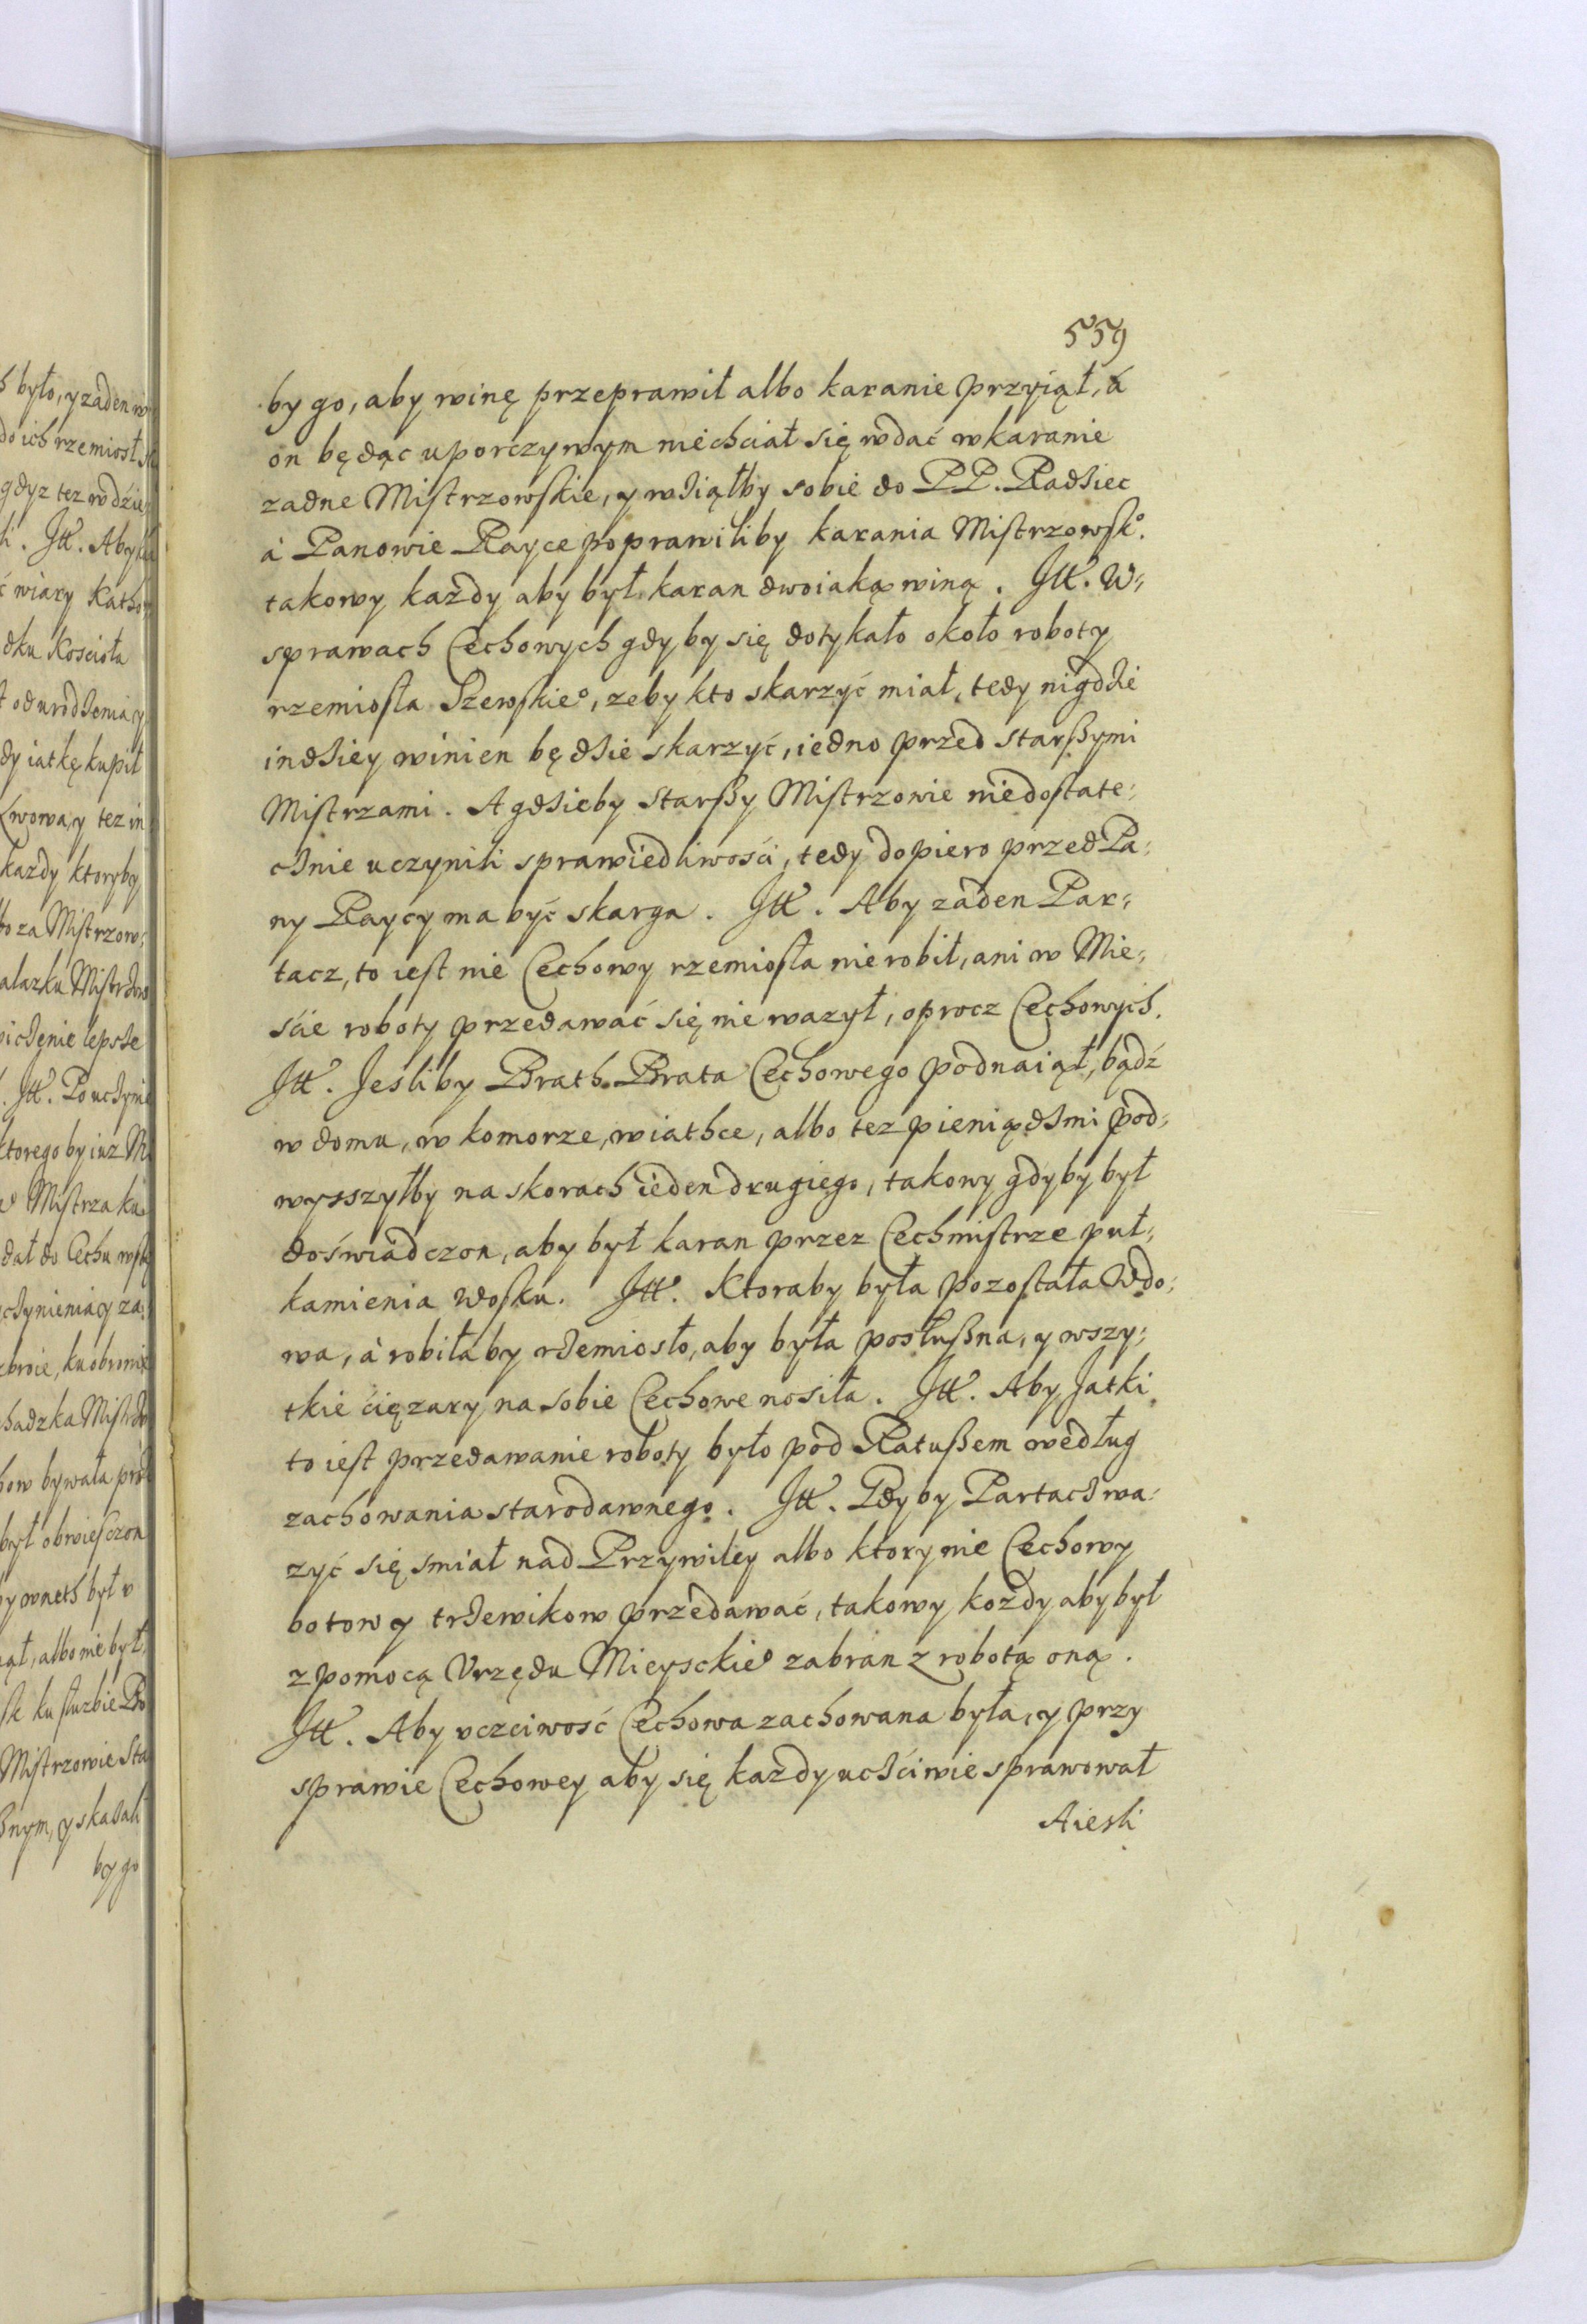 559
by go, aby winę przeprawił albo karanie przyiął, á
on będąc uporczywym niechciał się wdać w karanie
zadne Mistrzowskie, y wziąłby sobie do PP. Radziec
à Panowie Rayce poprawiliby karania Mistrzowskº.
takowy każdy aby był karan dwoiaką winą. Itt. W⸗
sprawach Cechowych gdy by się dotykało około roboty
rzemiosła Szewskieº, zeby kto skarzyć miał, tedy nigdzie
indziey winien będzie skarzyć, iedno przed starßymi
Mistrzami. A gdzieby Starßy Mistrzowie niedostate⸗
cznie uczynili sprawiedliwości, tedy dopiero przed Pa⸗
ny Raycy ma być skarga. Itt. Aby zaden Par⸗
tacz, to iest nie Cechowy rzemiosła nie robił, ani w Mie⸗
ście roboty przedawać się nie wazył, oprocz Cechowych.
Itt. Jesliby Brath Brata Cechowego podnaiął, bądź
w domu, w komorze, w iathce, albo tez pieniądzmi pod⸗
wysszyłby na skorach ieden drugiego, takowy gdyby był
doświadczon, aby był karan przez Cechmistrze puł⸗
kamienia Wosku. Itt. Ktoraby była pozostała Wdo⸗
wa, à robiłaby rzemiosło, aby była posłußna, y wszy⸗
tkie ciężary na sobie Cechowe nosiła. Itt. Aby Jatki
to iest przedawanie roboty było pod Ratußem według
zachowania starodawnego. Itt. Gdyby Partacz wa⸗
zyć się śmiał nad Przywiley albo ktory nie Cechowy
botow y trzewikow przedawać, takowy kozdy aby był
z pomocą Vrzędu Mieysckieº zabran z robotą oną.
Itt. Aby vczciwość Cechowa zachowana była, y przy
sprawie Cechowey aby się każdy uczciwie sprawował
A iesli